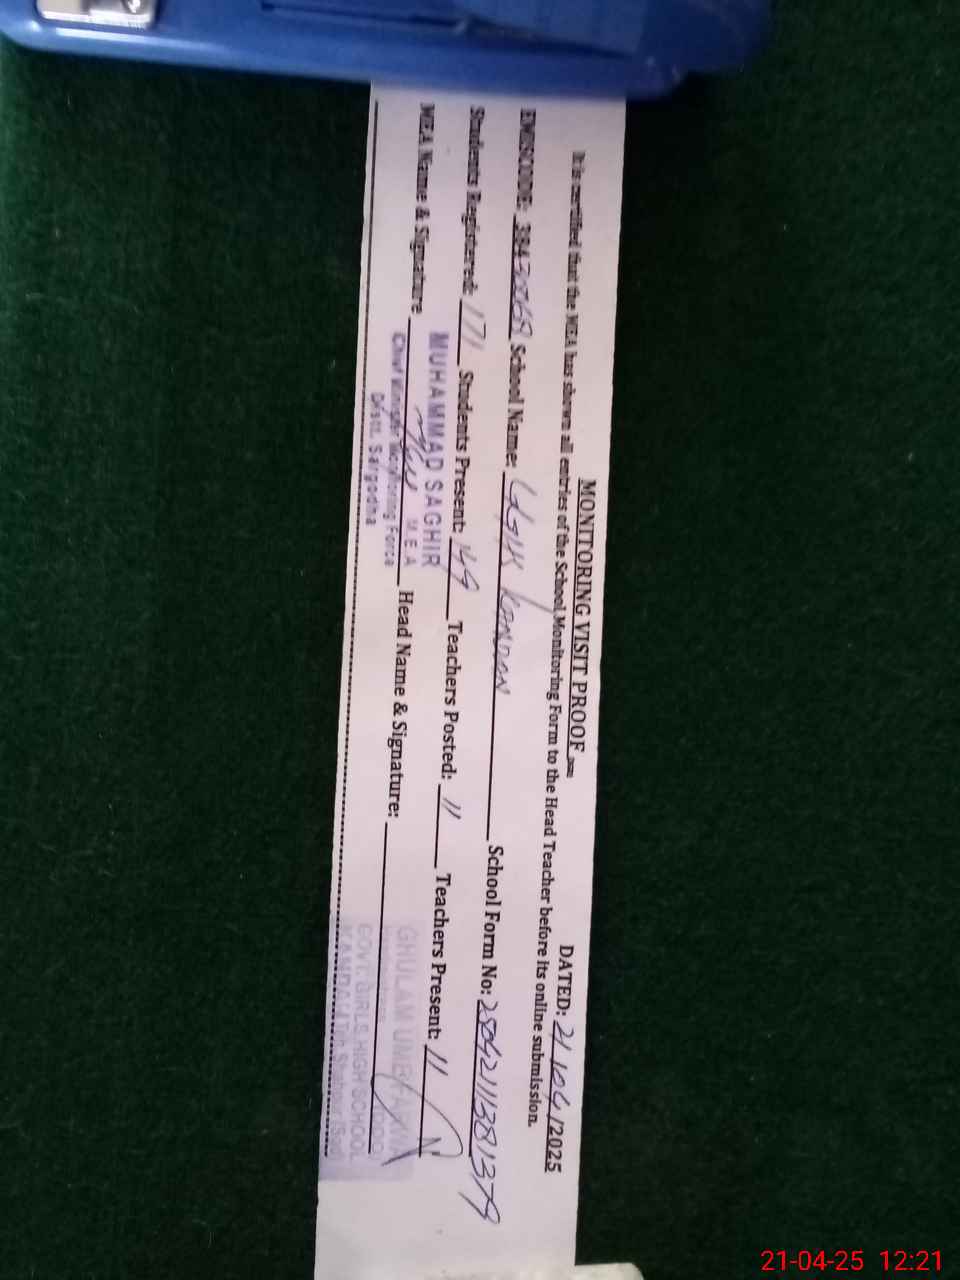 MONITORING VISIT PROOF
DATED: 21/04/2025
It is certified that the MEA has shown all entries of the School Monitoring Form to the Head Teacher before its online submission.
EMISCODE: School Name: KANDAN School Form No:
Students Registered: 171 Students Present: 149 Teachers Posted: 11 Teachers Present: 11
MEA Name & Signature Head Name & Signature:
MUHAMMAD SAGHIR
M.E.A
Chief Minister Monitoring Force
Distt. Sargodha
GHULAM
GOVT. GIRLS HIGH SCHOOL
21-04-25 12:21